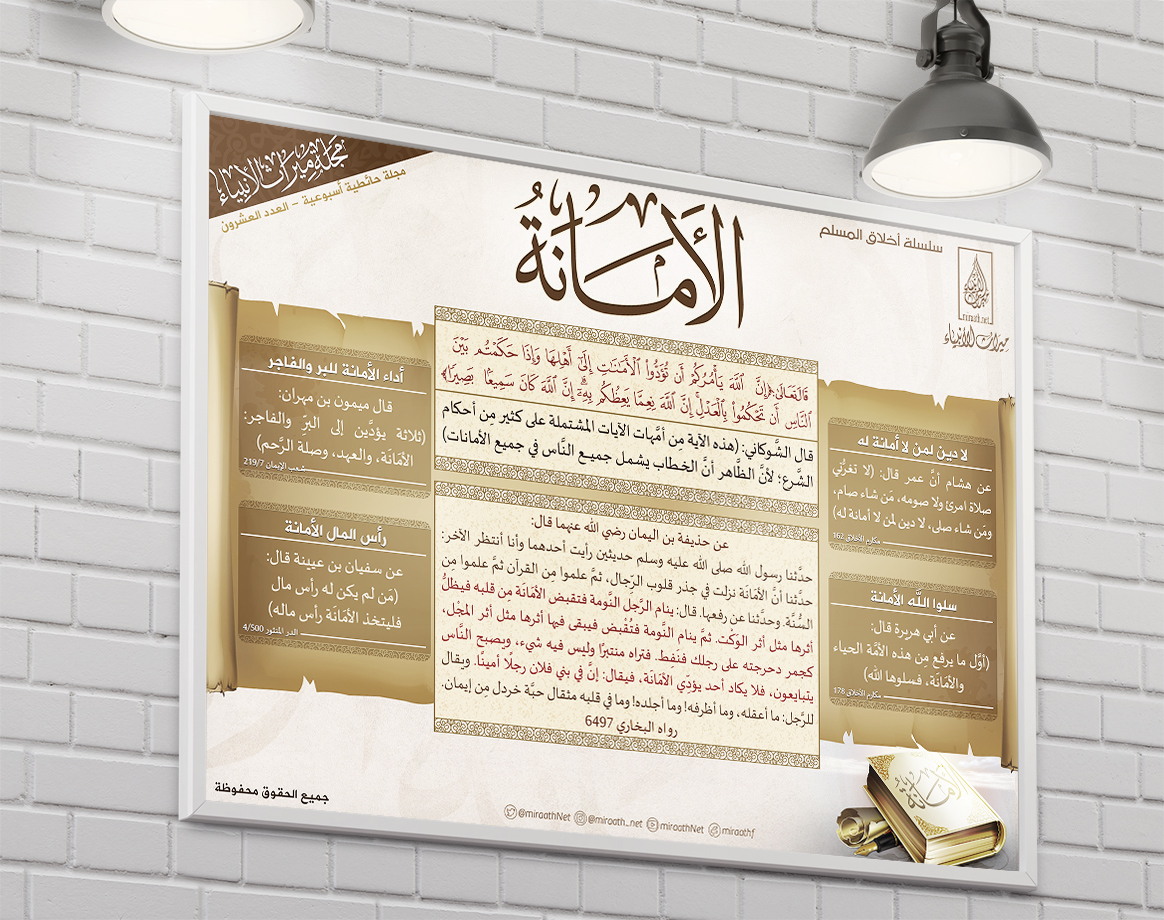 مجلة ميراث الأنبياء
مجلة حائطية أسبوعية - العدد العشرون
سلسلة أخلاق المسلم
miraath.net
ميراث الأنبياء
الأَمَانَةُ
قَالَ تَعَالَىٰ: ﴿إِنَّ ٱللَّهَ يَأۡمُرُكُمۡ أَن تُؤَدُّواْ ٱلۡأَمَٰنَٰتِ إِلَىٰٓ أَهۡلِهَا وَإِذَا حَكَمۡتُم بَيۡنَ
ٱلنَّاسِ أَن تَحۡكُمُواْ بِٱلۡعَدۡلِۚ إِنَّ ٱللَّهَ نِعِمَّا يَعِظُكُم بِهِۦٓۗ إِنَّ ٱللَّهَ كَانَ سَمِيعَۢا بَصِيرٗا﴾
قال الشَّوكاني: (هذه الآية مِن أمَّهات الآيات المشتملة على كثير مِن أحكام
الشَّرع؛ لأنَّ الظَّاهر أنَّ الخطاب يشمل جميع النَّاس في جميع الأمانات)
عن حذيفة بن اليمان رضي الله عنهما قال:
حدَّثنا رسول الله صلى الله عليه وسلم حديثين رأيت أحدهما وأنا أنتظر الآخر:
حدَّثنا أنَّ الأمَانَة نزلت في جذر قلوب الرِّجال، ثمَّ علموا مِن القرآن ثمَّ علموا مِن
السُّنَّة. وحدَّثنا عن رفعها. قال: ينام الرَّجل النَّومة فتقبض الأمَانَة مِن قلبه فيظلُّ
أثرها مثل أثر الوَكْت. ثمَّ ينام النَّومة فتُقْبض فيبقى فيها أثرها مثل أثر المجْل،
كجمر دحرجته على رجلك فنَفِط. فتراه منتبِرًا وليس فيه شيء، ويصبح النَّاس
يتبايعون، فلا يكاد أحد يؤدِّي الأمَانَة، فيقال: إنَّ في بني فلان رجلًا أمينًا. ويقال
للرَّجل: ما أعقله، وما أظرفه! وما أجلده! وما في قلبه مثقال حبَّة خردل مِن إيمان.
رواه البخاري 6497
لا دين لمن لا أمانة له
عن هشام أنَّ عمر قال: (لا تغرَّني
صلاة امرئ ولا صومه، مَن شاء صام،
ومَن شاء صلى، لا دين لمن لا أمانة له)
مكارم الأخلاق 162
سلوا اللَّه الأمانة
عن أبي هريرة قال:
(أوَّل ما يرفع مِن هذه الأمَّة الحياء
والأمَانَة، فسلوها الله)
مكارم الأخلاق 178
أداء الأمانة للبر والفاجر
قال ميمون بن مهران:
(ثلاثة يؤدَّين إلى البرِّ والفاجر:
الأمَانَة، والعهد، وصلة الرَّحم)
شعب الإيمان 219/7
رأس المال الأمانة
عن سفيان بن عيينة قال:
(مَن لم يكن له رأس مال
فليتخذ الأمَانَة رأس ماله)
الدر المنثور 4/500
أمانة
جميع الحقوق محفوظة
@miraathNet @miraath_net miraathNet miraathf